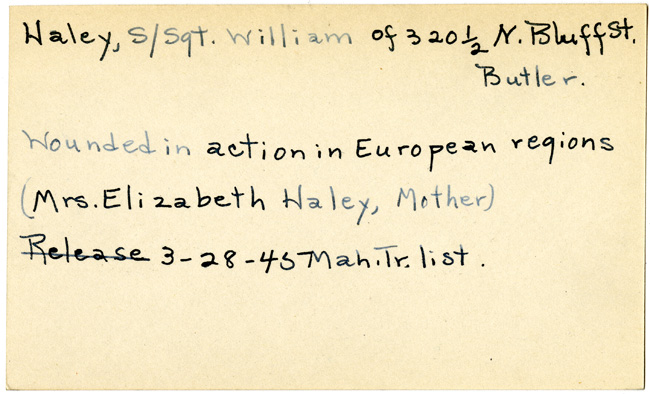 Haley, S/Sgt. William of 320½ N. Bluff St.
Butler.
Wounded in action in European regions
(Mrs. Elizabeth Haley, Mother)
Release 3-28-45 Mah. Tr. list.